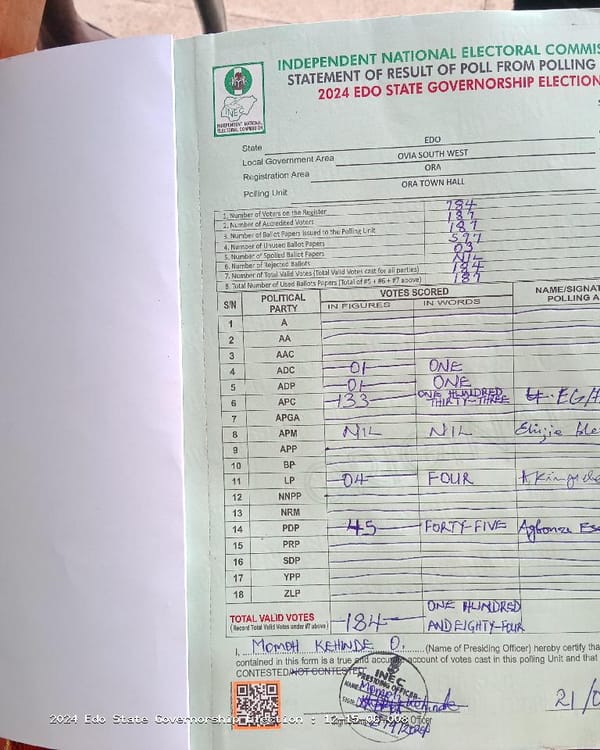 INDEPENDENT NATIONAL ELECTORAL COMMIS
STATEMENT OF RESULT OF POLL FROM POLLING
2024 EDO STATE GOVERNORSHIP ELECTION
INEC
INDEPENDENT NATIONAL
ELECTORAL COMMISSION
State EDO
Local Government Area OVIA SOUTH WEST
Registration Area ORA
Polling Unit ORA TOWN HALL
1. Number of Voters on the Register 784
2. Number of Accredited Voters 187
3. Number of Ballot Papers Issued to the Polling Unit 187
4. Number of Unused Ballot Papers 597
5. Number of Spoiled Ballot Papers 03
6. Number of Rejected Ballots NIL
7. Number of Total Valid Votes (Total Valid Votes cast for all parties) 184
8. Total Number of Used Ballots Papers (Total of #5 + #6 + #7 above) 187
S/N POLITICAL PARTY VOTES SCORED NAME/SIGNAT
IN FIGURES IN WORDS POLLING A
1 A
2 AA
3 AAC
4 ADC 01 ONE
5 ADP 01 ONE
6 APC 133 ONE HUNDRED THIRTY-THREE
7 APGA
8 APM NIL NIL
9 APP
10 BP
11 LP 04 FOUR
12 NNPP
13 NRM
14 PDP 45 FORTY-FIVE Agbonze Ese
15 PRP
16 SDP
17 YPP
18 ZLP
TOTAL VALID VOTES 184 ONE HUNDRED AND EIGHTY-FOUR
(Record Total Valid Votes under #7 above)
I, MOMOH KEHINDE O. (Name of Presiding Officer) hereby certify tha
contained in this form is a true and accurate account of votes cast in this polling Unit and that
CONTESTED/NOT CONTESTED
INEC
PRESIDING OFFICER
21/9/2024
21/0
2024 Edo State Governorship Election : 12-15-